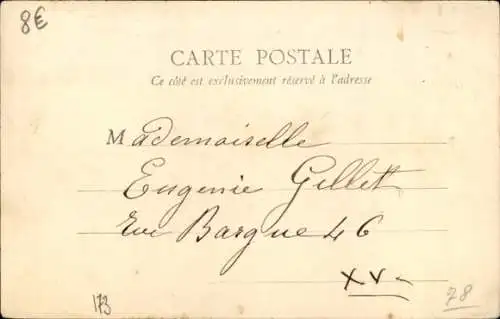 8€
CARTE POSTALE
Ce côté est exclusivement réservé à l'adresse
Mademoiselle
Eugenie Gillett
rue Bargue 46
XV-
173
78